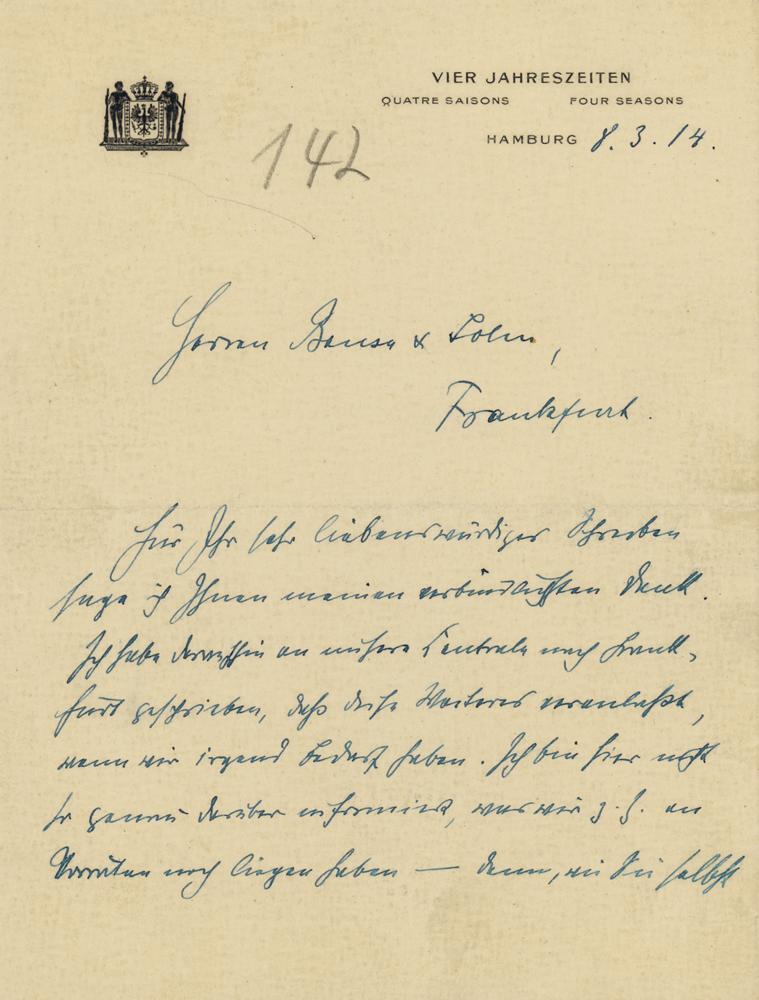 VIER JAHRESZEITEN
QUATRE SAISONS FOUR SEASONS
HAMBURG 8.3.14.
142
Herren Bansa & Sohn,
Frankfurt.
Für Ihr sehr liebenswürdiges Schreiben
sage ich Ihnen meinen verbindlichsten Dank.
Ich habe daraufhin an unsere Centrale nach Frank-
furt geschrieben, daß diese Weiteres veranlaßt,
wenn wir irgend Bedarf haben. Ich bin hier nicht
so genau darüber informiert, was wir z. Z. an
Vorräten noch liegen haben — denn, wie Sie selbst